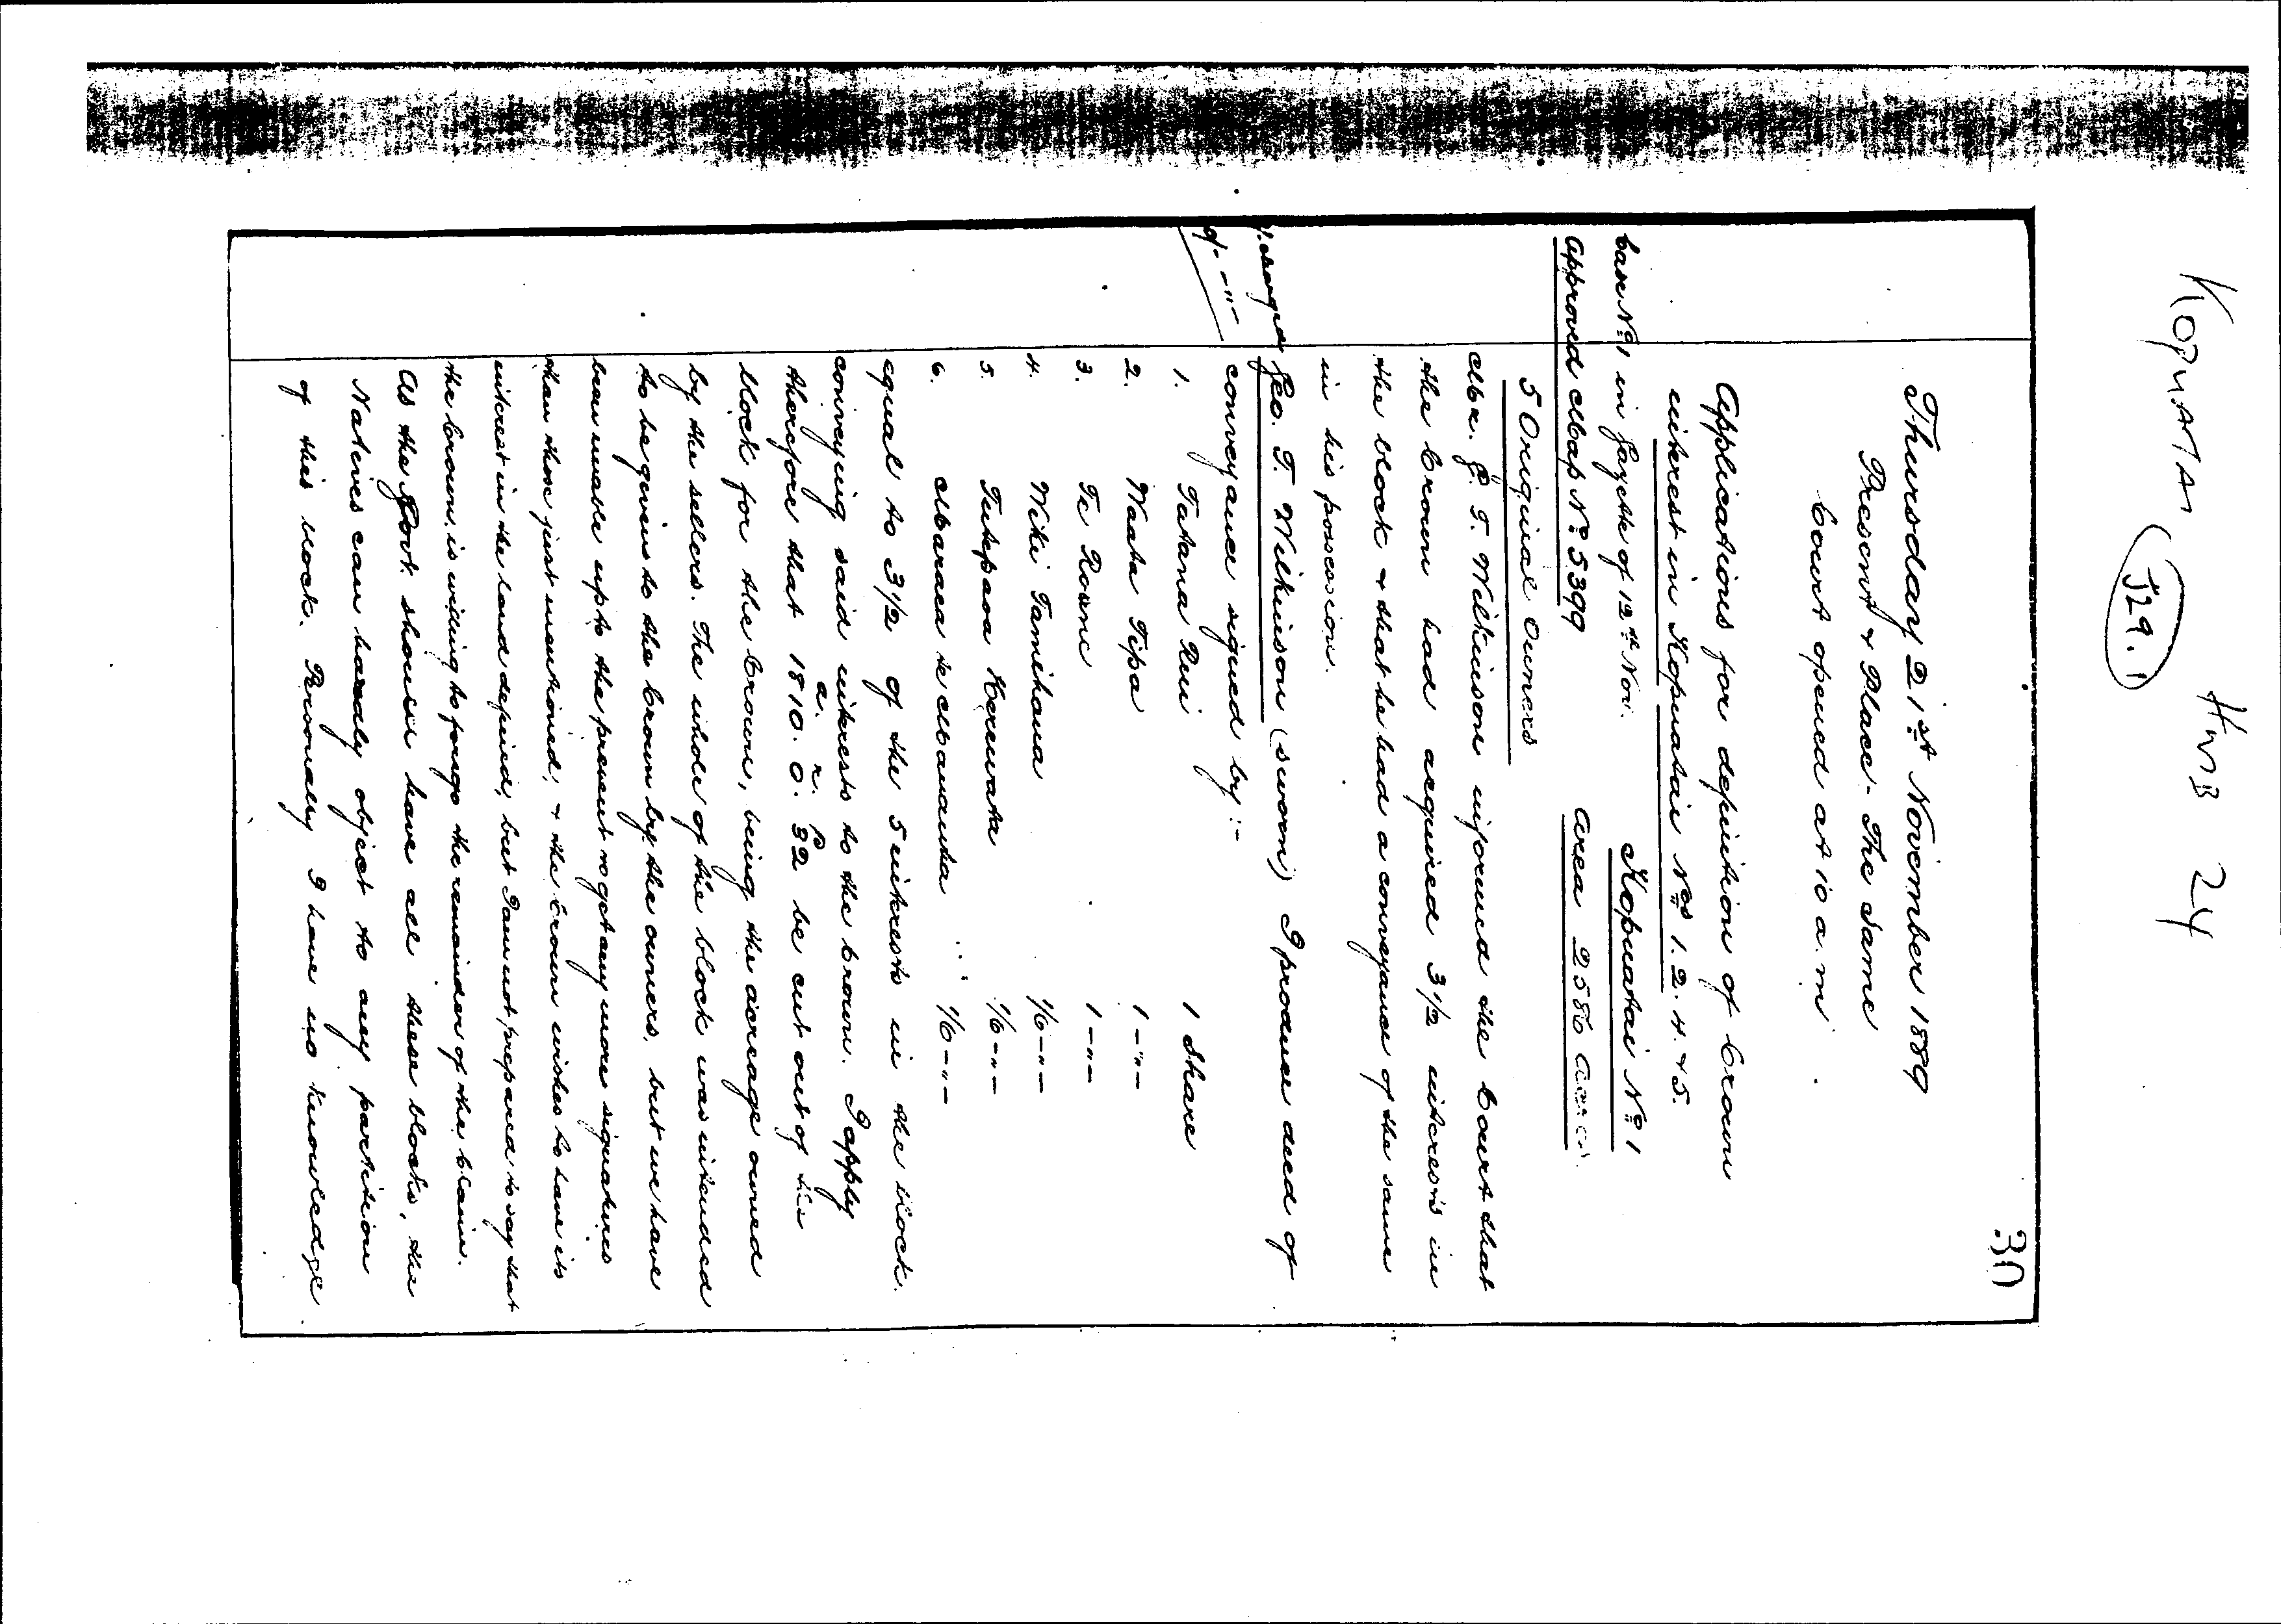 KOPUATAI HWB 24
J29.1
30
Thursday 21st November 1889
Present & Place - The Same
Court opened at 10 a.m.
Applications for definition of Crown
interest in Kopuatai Nos 1. 2. 4. & 5.
Case No. 1 in Gazette of 12th Nov. Kopuatai No. 1
Approved Map No. 5399 Area 2586 acres.
5 Original Owners
Mr. G. T. Wilkinson informed the Court that
the Crown had acquired 3 1/2 interests in
the block & that he had a conveyance of the same
in his possession.
Geo. T. Wilkinson (sworn) I produce deed of
conveyance signed by :-
1. Tutana Rui 1 Share
2. Waata Tipa 1 -"-
3. Te Roane 1 -"-
4. Wiki Tamihana 1/6 -"-
5. Tutepaoa Kereuata 1/6 -"-
6. Maraea te Mauaata 1/6 -"-
equal to 3 1/2 of the 5 interests in the block.
conveying said interests to the Crown. I apply
a. r. p.
therefore that 1810. 0. 32 be cut out of this
block for the Crown, being the acreage owned
by the sellers. The whole of the block was intended
to be given to the Crown by the owners. but we have
been unable up to the present to get any more signatures
than those just mentioned, & the Crown wishes to have its
interest in the land defined, but I am not prepared to say that
the Crown is willing to forego the remainder of the claim.
As the Govt. should have all these blocks, the
Natives can hardly object to any partition
of this block. Personally I have no knowledge